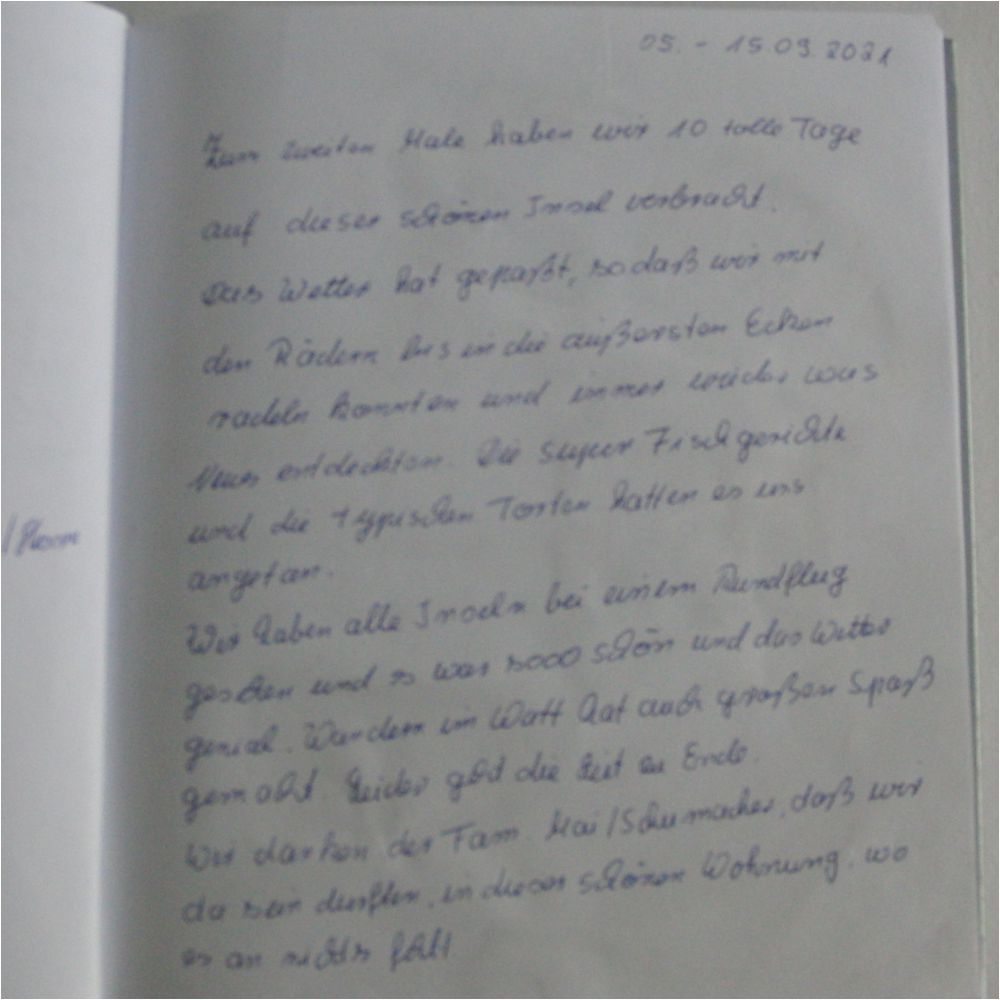 05. - 15.09.2021
Zum zweiten Male haben wir 10 tolle Tage
auf dieser schönen Insel verbracht.
Das Wetter hat gepaßt, sodaß wir mit
den Rädern bis in die äußersten Ecken
radeln konnten und immer wieder was
Neues entdeckten. Die super Fischgerichte
und die typischen Torten hatten es uns
angetan.
Wir haben alle Inseln bei einem Rundflug
gesehen und es war sooo schön und das Wetter
genial. Wandern im Watt hat auch großen Spaß
gemacht. Leider geht die Zeit zu Ende.
Wir danken der Fam. Mai/Schumacher, daß wir
da sein durften, in dieser schönen Wohnung, wo
es an nichts fehlt